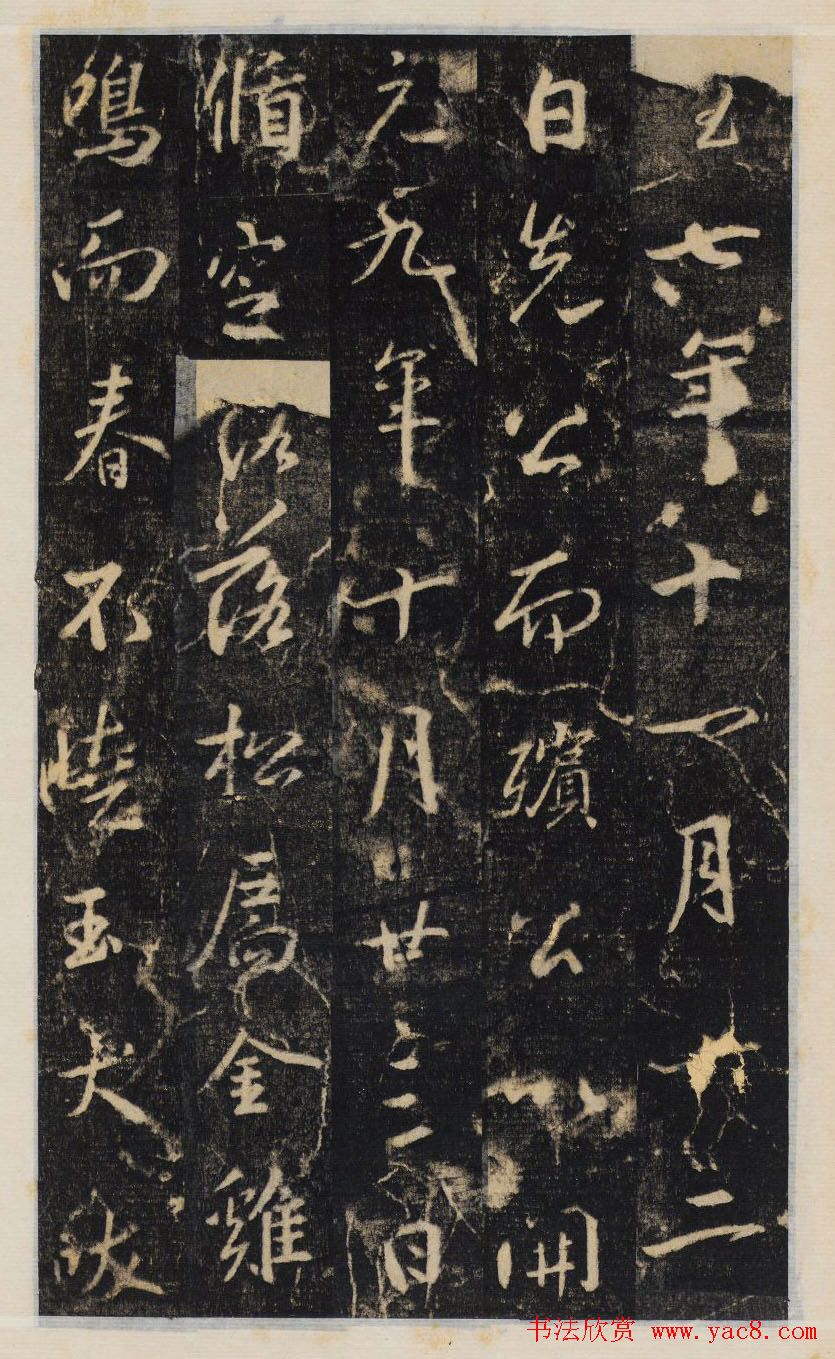 六年十一月二
日先公而殯公以開
元九年十月廿三日
脩空落松扃金雞
鳴而春不曉玉犬吠
书法欣赏 www.yac8.com